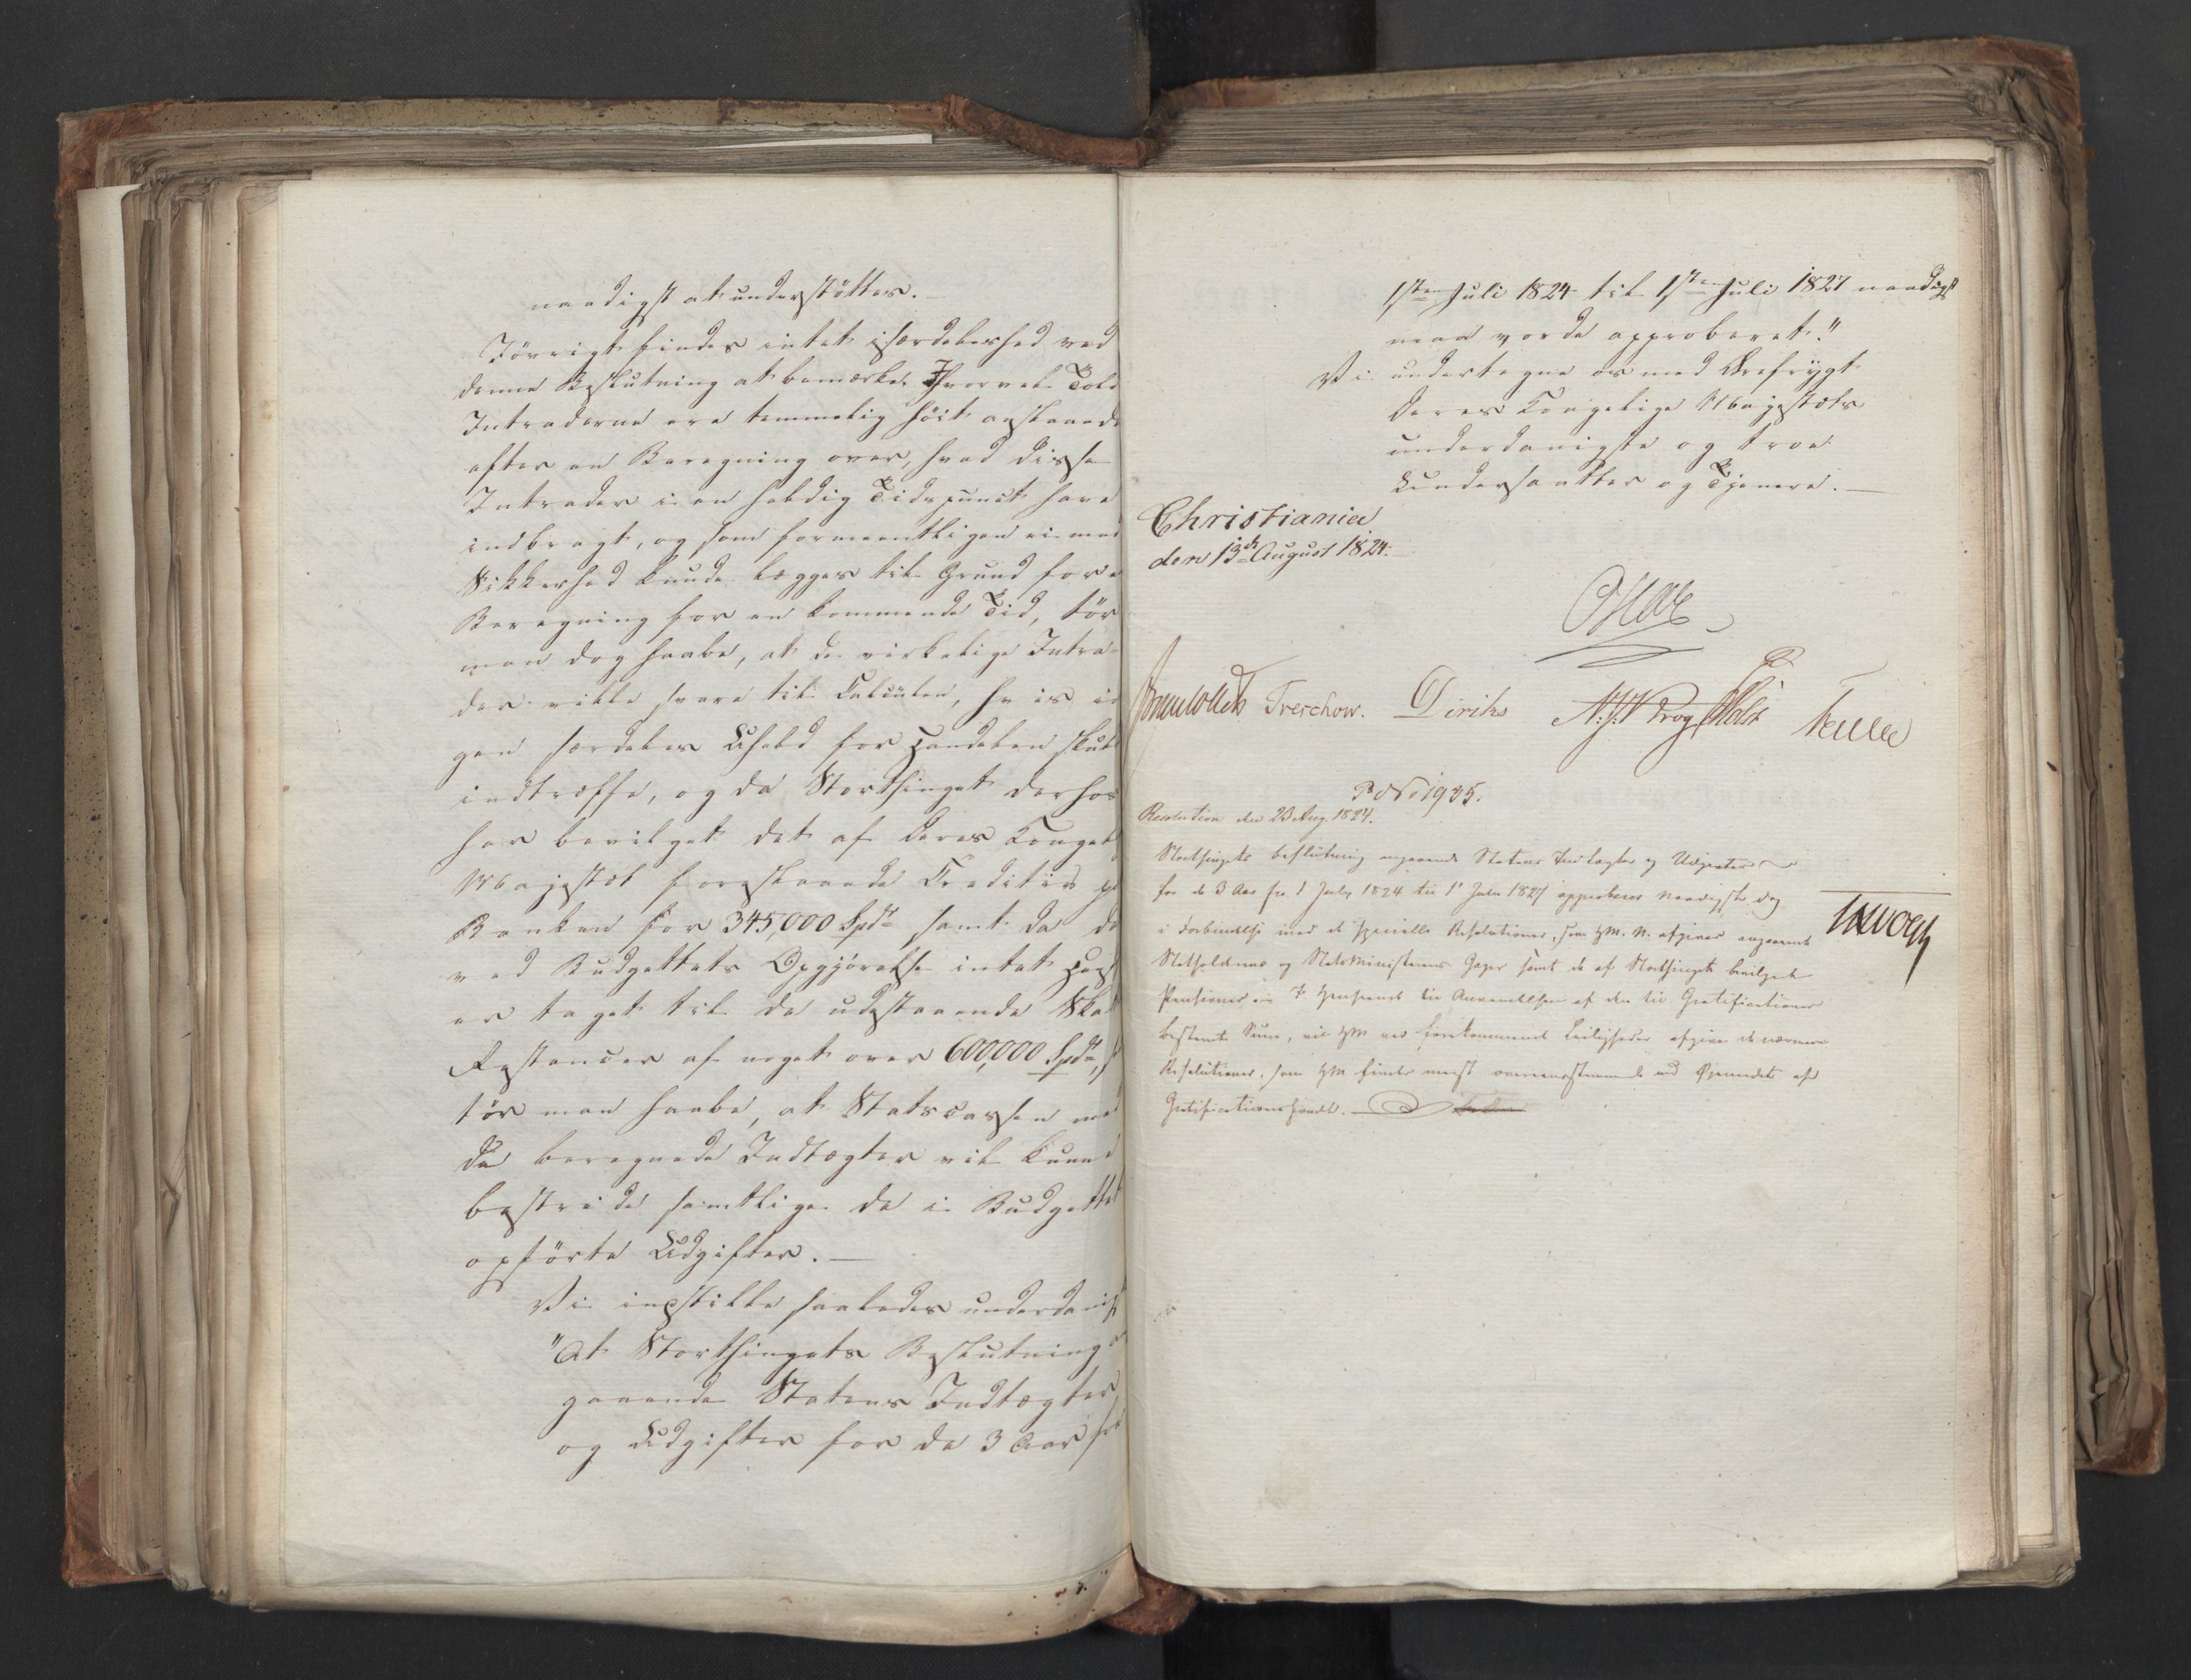 naadigst at understöttes.
Iövrigt findes intet isærdeleshed ved
denne Beslutning at bemærke. Hvorvel Told
Intraderne ere temmelig höit anslaaede
efter en Beregning over, hvad disse
Intrader i en heldig Tidspunct have
indbragt, og som formeentligen ei med
Sikkerhed kunde lægges til Grund for
Beregning for en kommende Tid, tör
man dog haabe, at de virkelige Intra-
der ville svare til Calculen, hvis in
gen særdeles Uheld for Handelen skul
indtræffe, og da Storthinget derhos
har bevilget det af Deres Kongel
Majestæt foreslaaede Creditiv på
Banken for 345,000 Spdr samt da der
ved Budgettets Opgjörelse intet Hens
er taget til de udestaaende Skat
Restancer af noget over 600,000 Spdr,
tör man haabe, at Statscassen med
de beregnede Indtægter vil kunne
bestride samtlige de i Budgettet
opförte Udgifter.
Vi indstille saaledes underdanigst
"At Storthingets Beslutning an
gaaende Statens Indtægter
og Udgifter for de 3 Aar fra
1sten Juli 1824 til 1sten Juli 1827 naadigst
maa vorde approberet."
Vi undertegne os med Ærefrygt
Deres Kongelige Majestæts
underdanigste og troe
Undersaatter og Tjenere.
Christiania
den 13de August 1824.
Oscar
Sommerhielm Treschow. Diriks N. J. Krog P Holst
No 1935.
Resolution den 23 Aug. 1824.
Storthingets beslutning angaaende Statens Indtægter og Udgivter
for de 3 Aar fra 1 July 1824 til 1 Julii 1827 approberes naadigst dog
i Forbindelse med de specielle Resolutioner, som HM. N. afgiver angaaende
Statholderens og StatsMinisterens Gager samt de af Storthinget bevilgede
Pensioner. I Henseende til Anvendelsen af den til Gratificationer
bestemte Sum, vil HM ved forekommende Leiligheder afgive de nærmere
Resolutioner, som HM finder meest overeensstemmende med Øiemedet af
Gratificationsfondet.